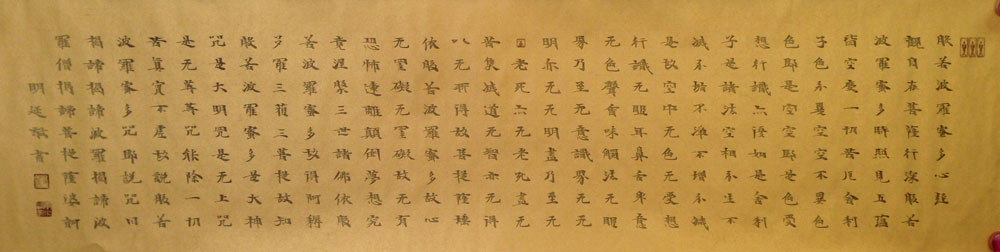 般若波羅蜜多心經
觀自在菩薩行深般若
波羅蜜多時照見五蘊
皆空度一切苦厄舍利
子色不異空空不異色
色即是空空即是色受
想行識亦復如是舍利
子是諸法空相不生不
滅不垢不淨不增不減
是故空中无色无受想
行識无眼耳鼻舌身意
无色聲香味觸法无眼
界乃至无意識界无无
明亦无无明盡乃至无
老死亦无老死盡无
苦集滅道无智亦无得
以无所得故菩提薩埵
依般若波羅蜜多故心
无罣礙无罣礙故无有
恐怖遠離顛倒夢想究
竟涅槃三世諸佛依般
若波羅蜜多故得阿耨
多羅三藐三菩提故知
般若波羅蜜多是大神
咒是大明咒是无上咒
是无等等咒能除一切
苦真實不虛故說般若
波羅蜜多咒即說咒曰
揭諦揭諦波羅揭諦波
羅僧揭諦菩提薩婆訶
明延敬書